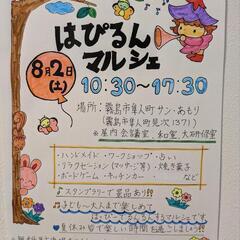 はぴるん
マルシェ
8月2日
(土)
10:30〜17:30
場所:霧島市隼人町 サン・あもり
(霧島市隼人町見次1371)
※屋内 会議室、和室、大研修室
・ハンドメイド・ワークショップ・占い
・リラクゼーション(マッサージ等)・焼き菓子
・ボードゲーム・キッチンカー など
♪スタンプラリーで景品あり!!
♪子ども〜大人まで楽しめて